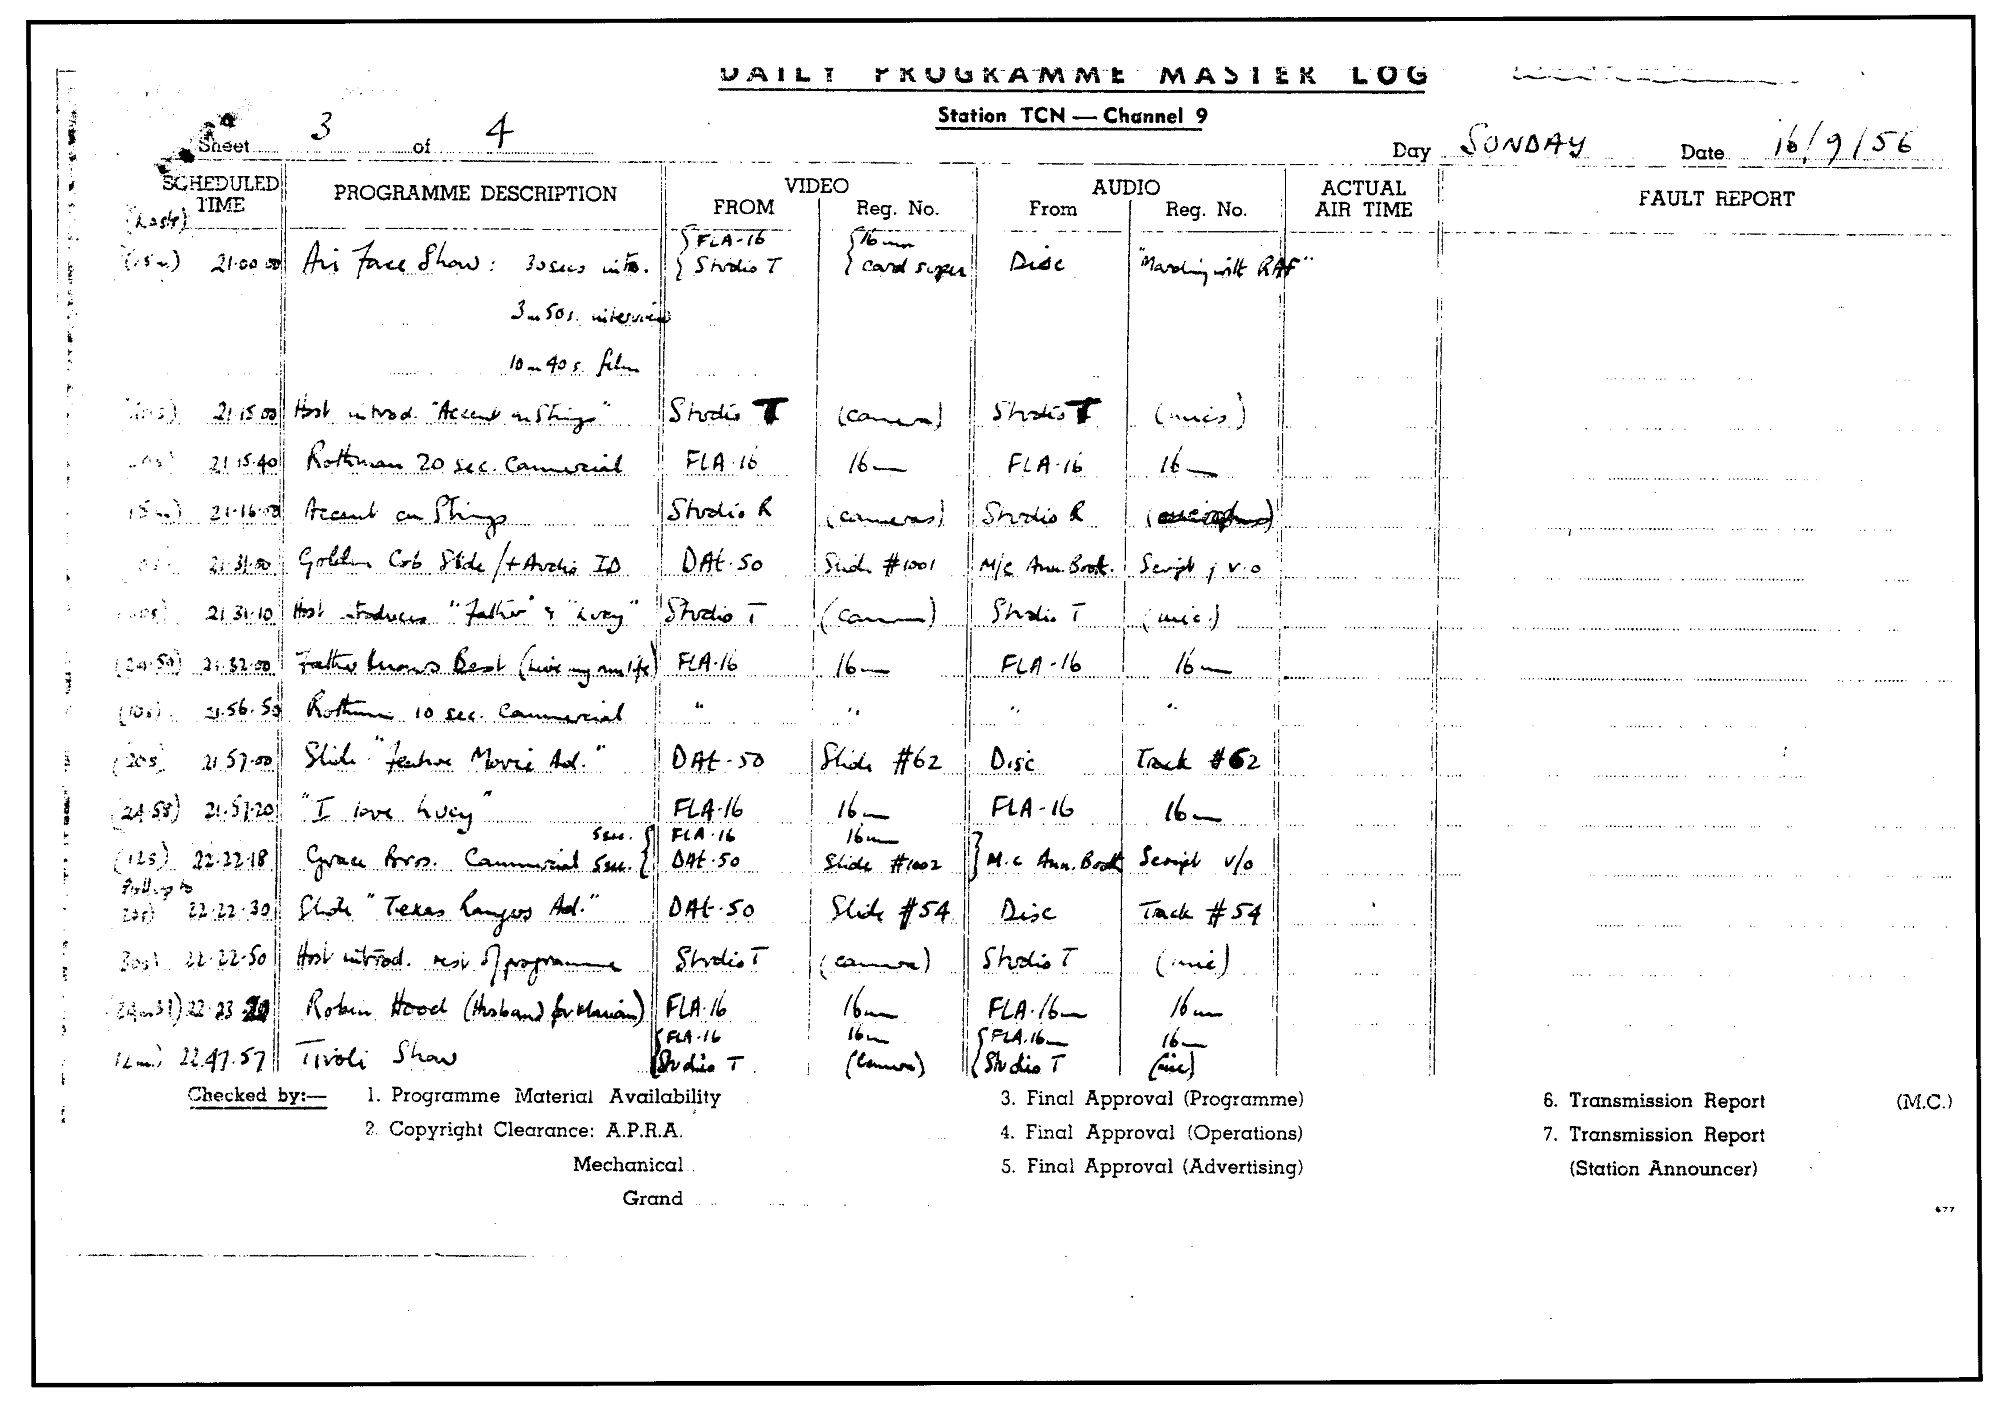 DAILY PROGRAMME MASTER LOG
Station TCN — Channel 9
Sheet 3 of 4 Day SUNDAY Date 16/9/56
SCHEDULED TIME PROGRAMME DESCRIPTION VIDEO AUDIO ACTUAL AIR TIME FAULT REPORT
FROM Reg. No. From Reg. No.
{FLA-16 {16mm
(15m) 21.00.00 Air Force Show: 30secs intro. Studio T card super Disc "Marching with RAF"
3m 50s. interview
10m 40s. film
21.15.00 Host introd. "Accent on Strings" Studio T (camera) Studio T (mics)
21.15.40 Rothman 20 sec. Commercial FLA-16 16mm FLA-16 16mm
(15m) 21.16.00 Accent on Strings Studio R (cameras) Studio R
21.31.00 Golden Cob Slide/+Audio ID DAt-50 Slide #1001 M/c Ann. Book. Script, v.o
21.31.10 Host introduces "Father" & "Lucy" Studio T (camera) Studio T (mic.)
(24.50) 21.32.00 Father knows Best (Live my own life) FLA-16 16mm FLA-16 16mm
(10s) 21.56.50 Rothman 10 sec. Commercial " " " "
(20s) 21.57.00 Slide "Feature Movie Ad." DAt-50 Slide #62 Disc Track #62
(24.58) 21.57.20 "I love Lucy" FLA-16 16mm FLA-16 16mm
5sec. { FLA-16 16mm
(12s) 22.22.18 Grace Bros. Commercial 5sec. { DAt-50 Slide #1002 } M.c Ann. Book Script v/o
22.22.30 Slide "Texas Rangers Ad." DAt-50 Slide #54 Disc Track #54
30s) 22.22.50 Host introd. rest of programme Studio T (camera) Studio T (mic)
22.23 Robin Hood (Husband for Marian) FLA-16 16mm FLA-16mm 16mm
{FLA-16 16mm {FLA.16mm 16mm
12m) 22.47.57 Tivoli Show Studio T (camera) Studio T (mic)
Checked by:— 1. Programme Material Availability 3. Final Approval (Programme) 6. Transmission Report (M.C.)
2. Copyright Clearance: A.P.R.A. 4. Final Approval (Operations) 7. Transmission Report
Mechanical 5. Final Approval (Advertising) (Station Announcer)
Grand